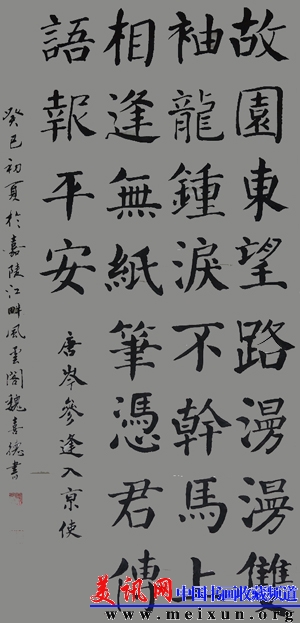 故園東望路漫漫雙
袖龍鍾淚不幹馬上
相逢無紙筆憑君傳
語報平安
唐岑參逢入京使
癸巳初夏於嘉陵江畔風雲閣魏喜德書
美讯网 中国书画收藏频道
www.meixun.org